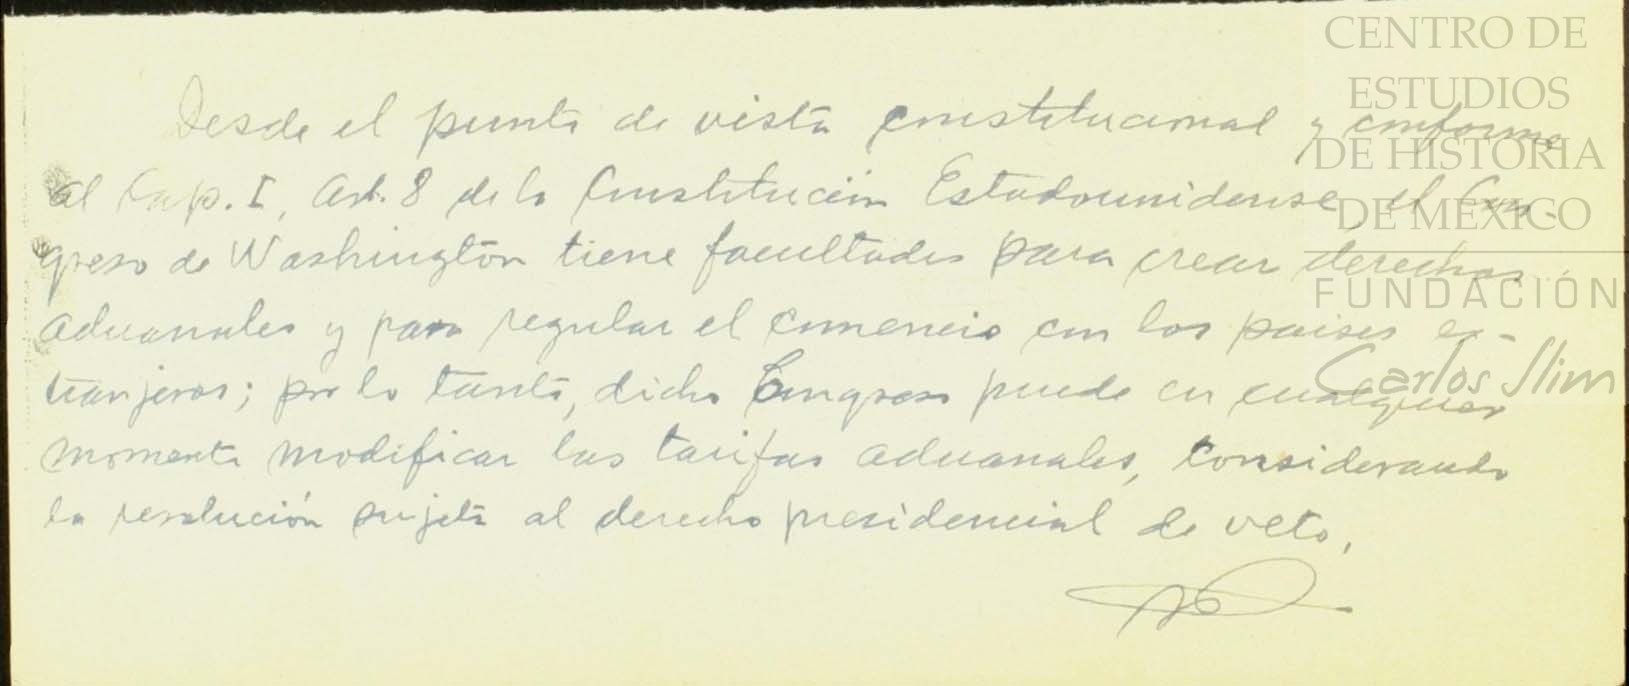 CENTRO DE
ESTUDIOS
DE HISTORIA
DE MEXICO
FUNDACIÓN
Carlos Slim
Desde el punto de vista constitucional y conforme
al Cap. I, Art. 8 de la Constitución Estadounidense, el Con-
greso de Washington tiene facultades para crear derechos
aduanales y para regular el comercio con los paises ex-
tranjeros; por lo tanto, dicho Congreso puede en cualquier
momento modificar las tarifas aduanales, considerando
la resolución sujeta al derecho presidencial de veto.